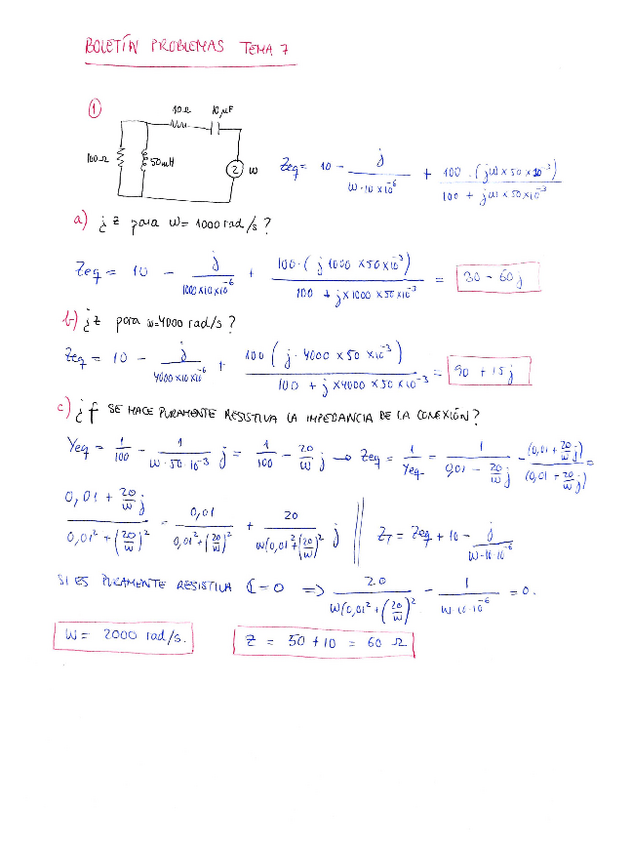 BOLETÍN PROBLEMAS TEMA 7
①
10Ω 10µF
100Ω 50mH 2 w
Zeq = 10 - j/(w·10×10⁻⁶) + 100·(jw×50×10⁻³)/(100 + jw×50×10⁻³)
a) ¿Z para w= 1000 rad/s?
Zeq = 10 - j/(1000×10×10⁻⁶) + 100·(j1000×50×10⁻³)/(100 + j×1000×50×10⁻³) = 30 - 60j
b) ¿Z para w=4000 rad/s?
Zeq = 10 - j/(4000×10×10⁻⁶) + 100(j·4000×50×10⁻³)/(100 + j×4000×50×10⁻³) = 90 + 15j
c) ¿f SE HACE PURAMENTE RESISTIVA LA IMPEDANCIA DE LA CONEXIÓN?
Yeq = 1/100 - 1/(w·50·10⁻³) j = 1/100 - 20/w j → Zeq = 1/Yeq = 1/(0,01 - 20/w j) - (0,01 + 20/w j)/(0,01 + 20/w j) =
(0,01 + 20/w j)/(0,01² + (20/w)²) = 0,01/(0,01² + (20/w)²) + 20/(w(0,01² + (20/w)²) j || Z_T = Zeq + 10 - j/(w·10·10⁻⁶)
SI ES PURAMENTE RESISTIVA ℂ=0 => 20/(w(0,01² + (20/w)²) - 1/(w·10·10⁻⁶) = 0.
w = 2000 rad/s. Z = 50 + 10 = 60 Ω